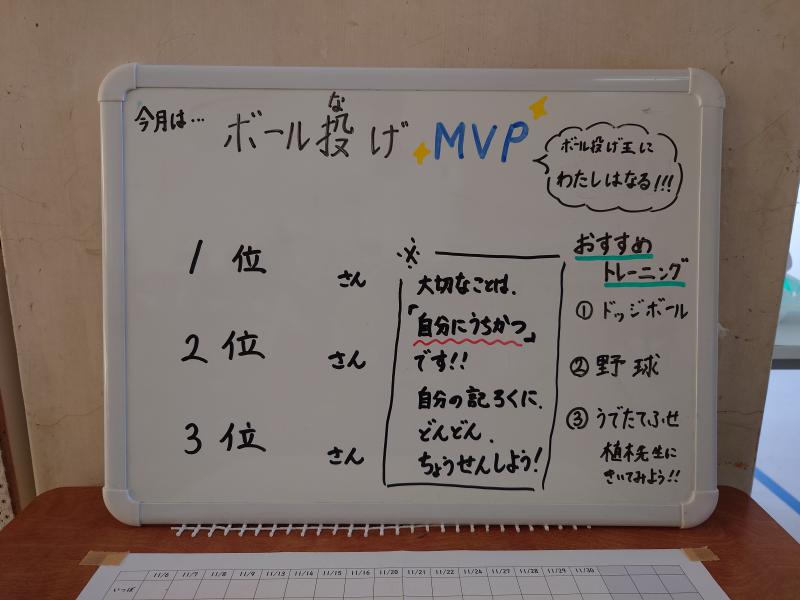 今月は…
な
ボール投げ MVP
ボール投げ王に
わたしはなる!!!
1位 さん
2位 さん
3位 さん
※
大切なことは、
「自分にうちかつ」
です!!
自分の記ろくに、
どんどん、
ちょうせんしよう!
おすすめ
トレーニング
① ドッジボール
② 野球
③ うでたてふせ
植木先生に
きいてみよう!!
11/6 11/7 11/8 11/9 11/13 11/14 11/15 11/16 11/20 11/21 11/22 11/24 11/27 11/28 11/29 11/30
いっぽ